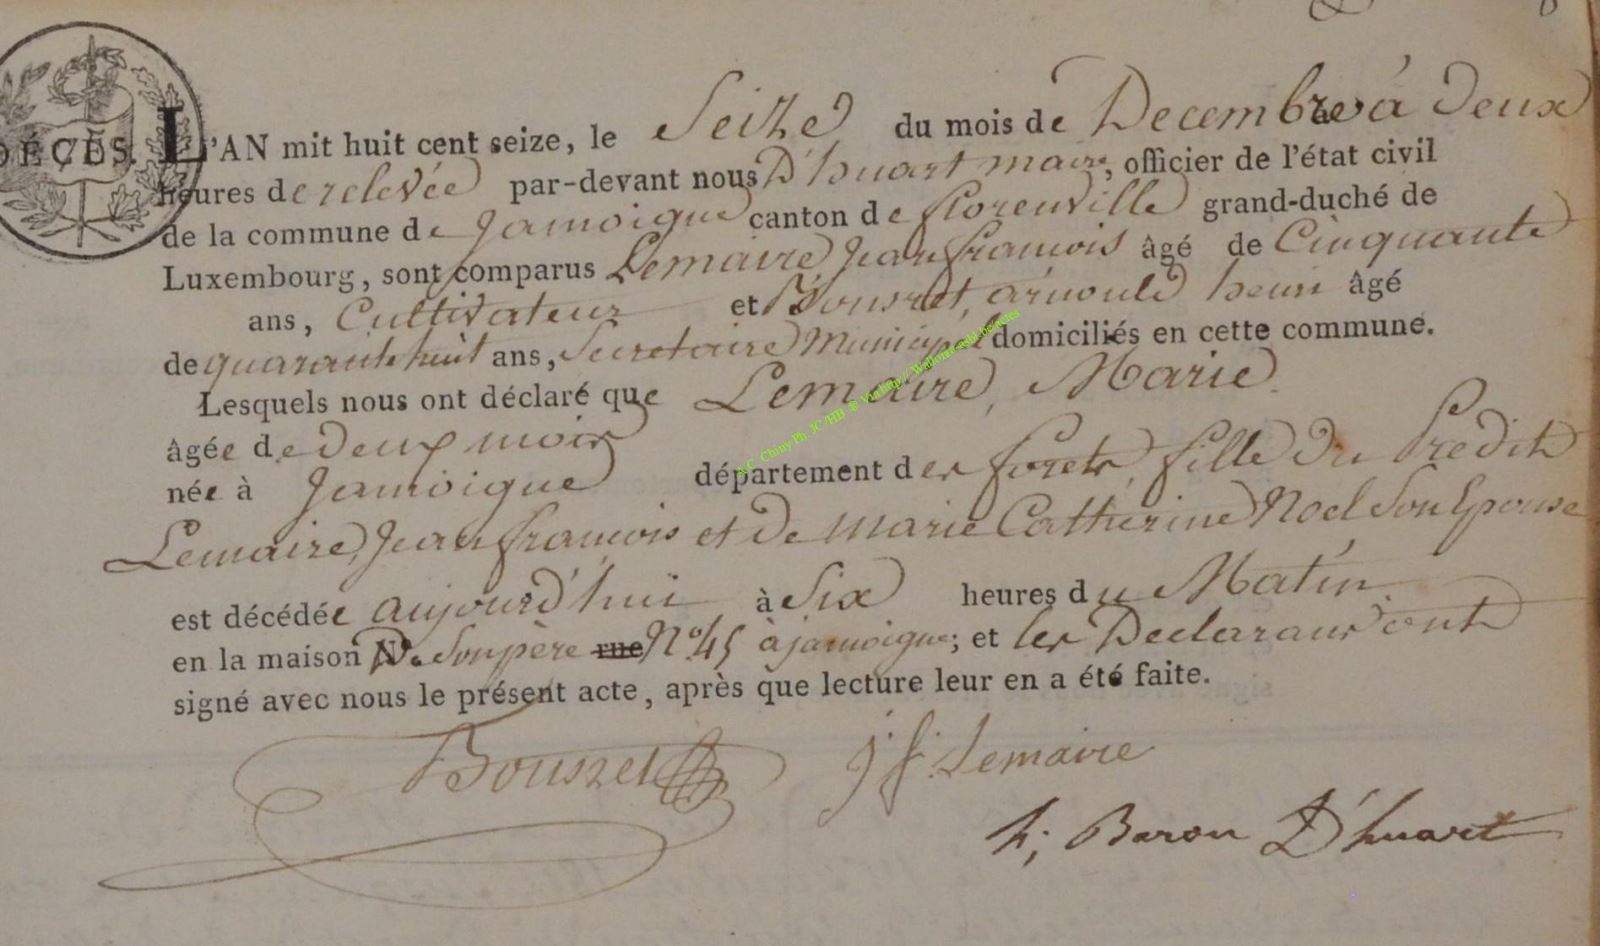 DÉCÈS. L'AN mit huit cent seize, le Seize du mois de Decembre à deux
heures de relevée par-devant nous D'huart maire, officier de l'état civil
de la commune de Jamoigne canton de florenville grand-duché de
Luxembourg, sont comparus Lemaire Jean françois âgé de Cinquante
ans, Cultivateur et Bousret, arnould henri âgé
de quarante huit ans, Secretaire Municipal domiciliés en cette commune.
Lesquels nous ont déclaré que Lemaire, Marie
âgée de deux mois
née à Jamoigne département des forets, fille du Predit
Lemaire, Jean françois et de marie Catherine Noel Son Epouse
est décédée aujourd'hui à Six heures du Matin
en la maison De Son père rue N° 45 à jamoigne; et les Declarans ont
signé avec nous le présent acte, après que lecture leur en a été faite.
Bousret J. f. Lemaire
h; Baron D'huart